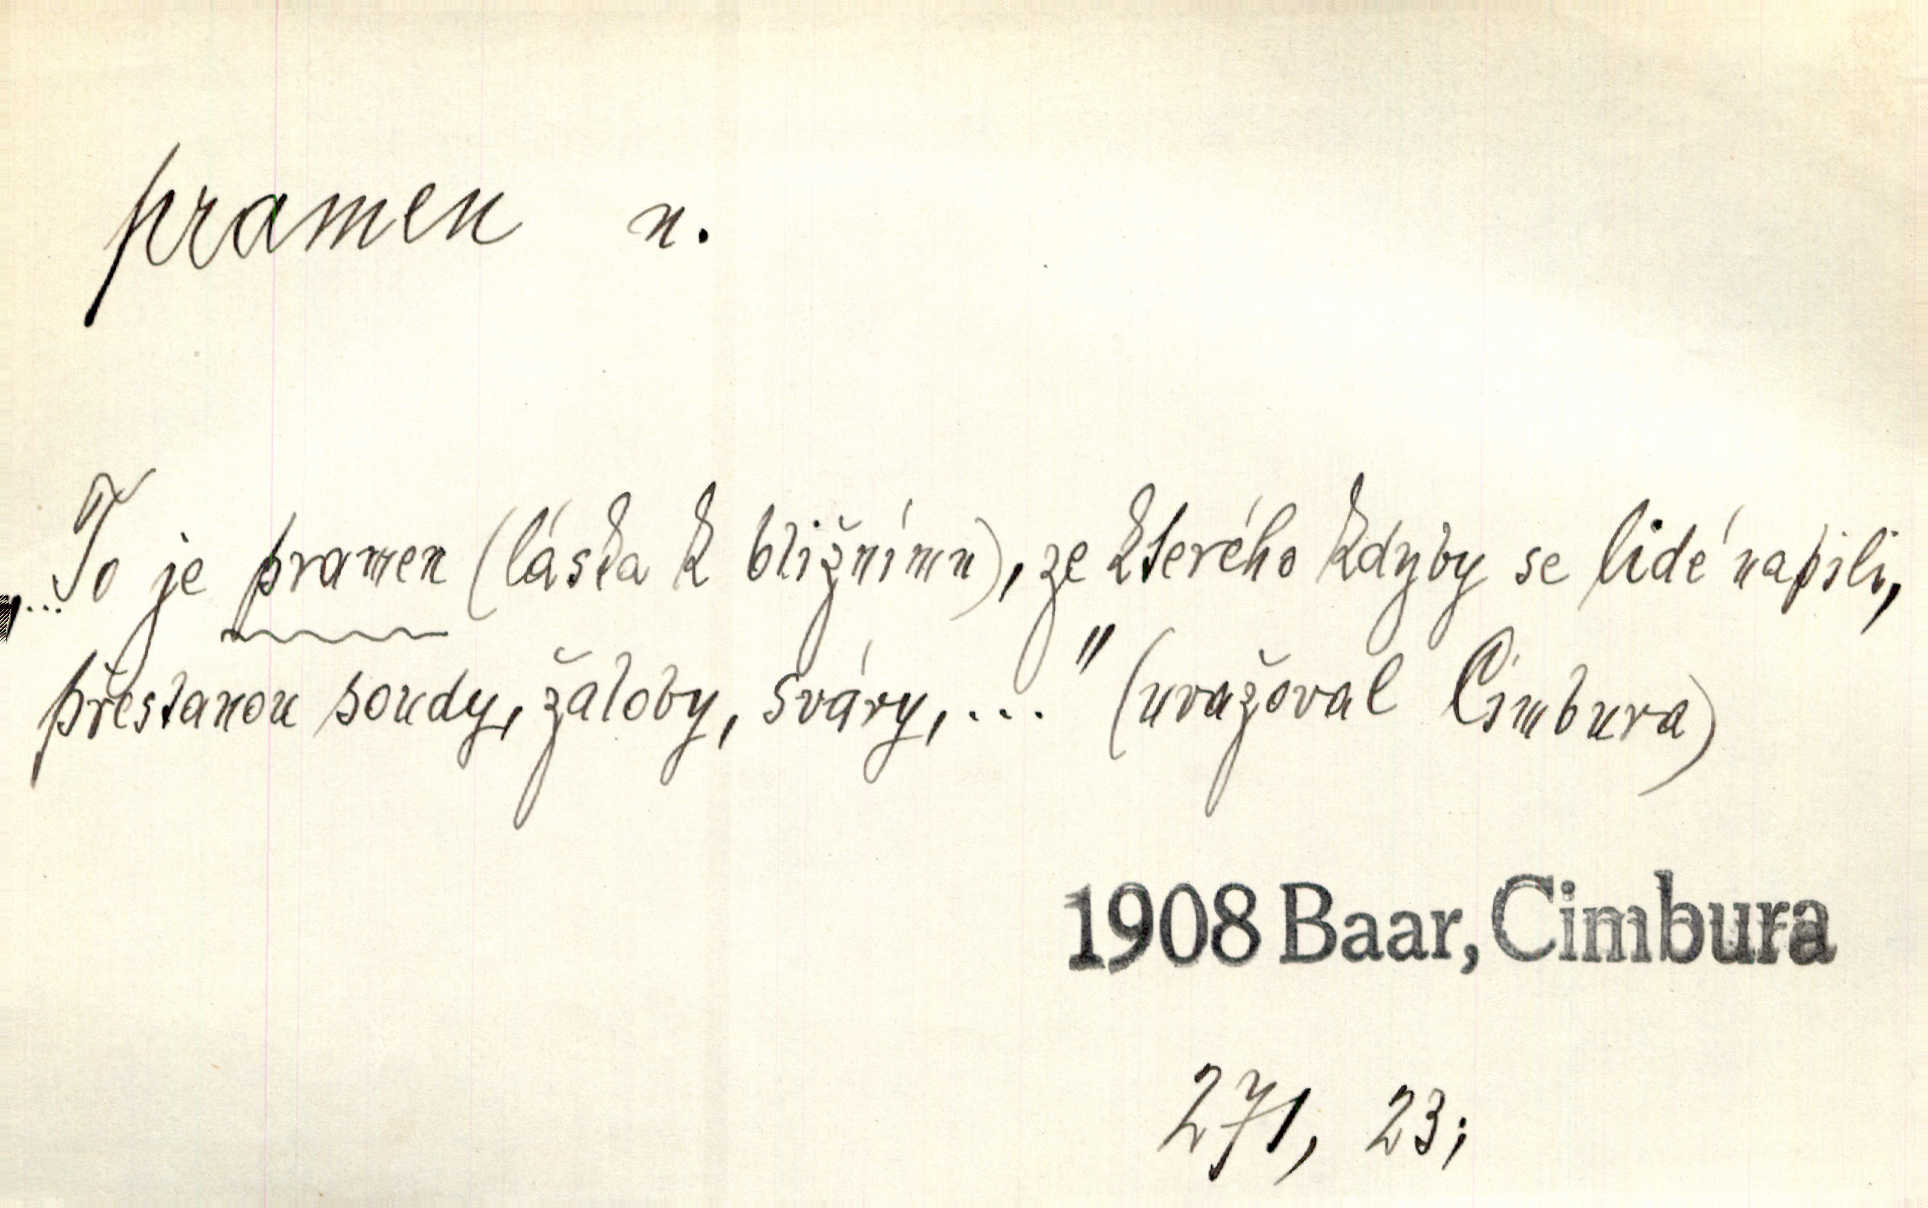 pramen n.
„...To je pramen (láska k bližnímu), ze kterého kdyby se lidé napili,
přestanou soudy, žaloby, sváry,..." (uvažoval Cimbura)
1908 Baar, Cimbura
271, 23;